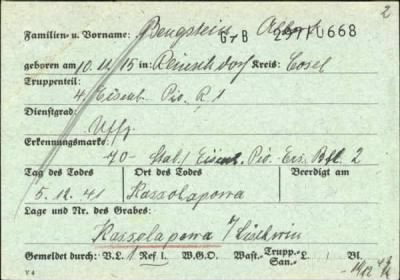 2
Familien- u. Vorname: Bengstein Albert
GrB 668
geboren am 10.11.15 in: Reinschdorf Kreis: Cosel
Truppenteil:
4./Eisenb. Pio. R. 1
Dienstgrad:
Uffz.
Erkennungsmarke:
-70- Stab./ Eisenb. Pio. Ers. Btl. 2
Tag des Todes Ort des Todes Beerdigt am
5.12.41 Kassolapowa
Lage und Nr. des Grabes:
Kassolapowa
Gemeldet durch: V.L. Ref I. W.G.O. Wast.- Trupp.- San.- L. Bl.
V 4